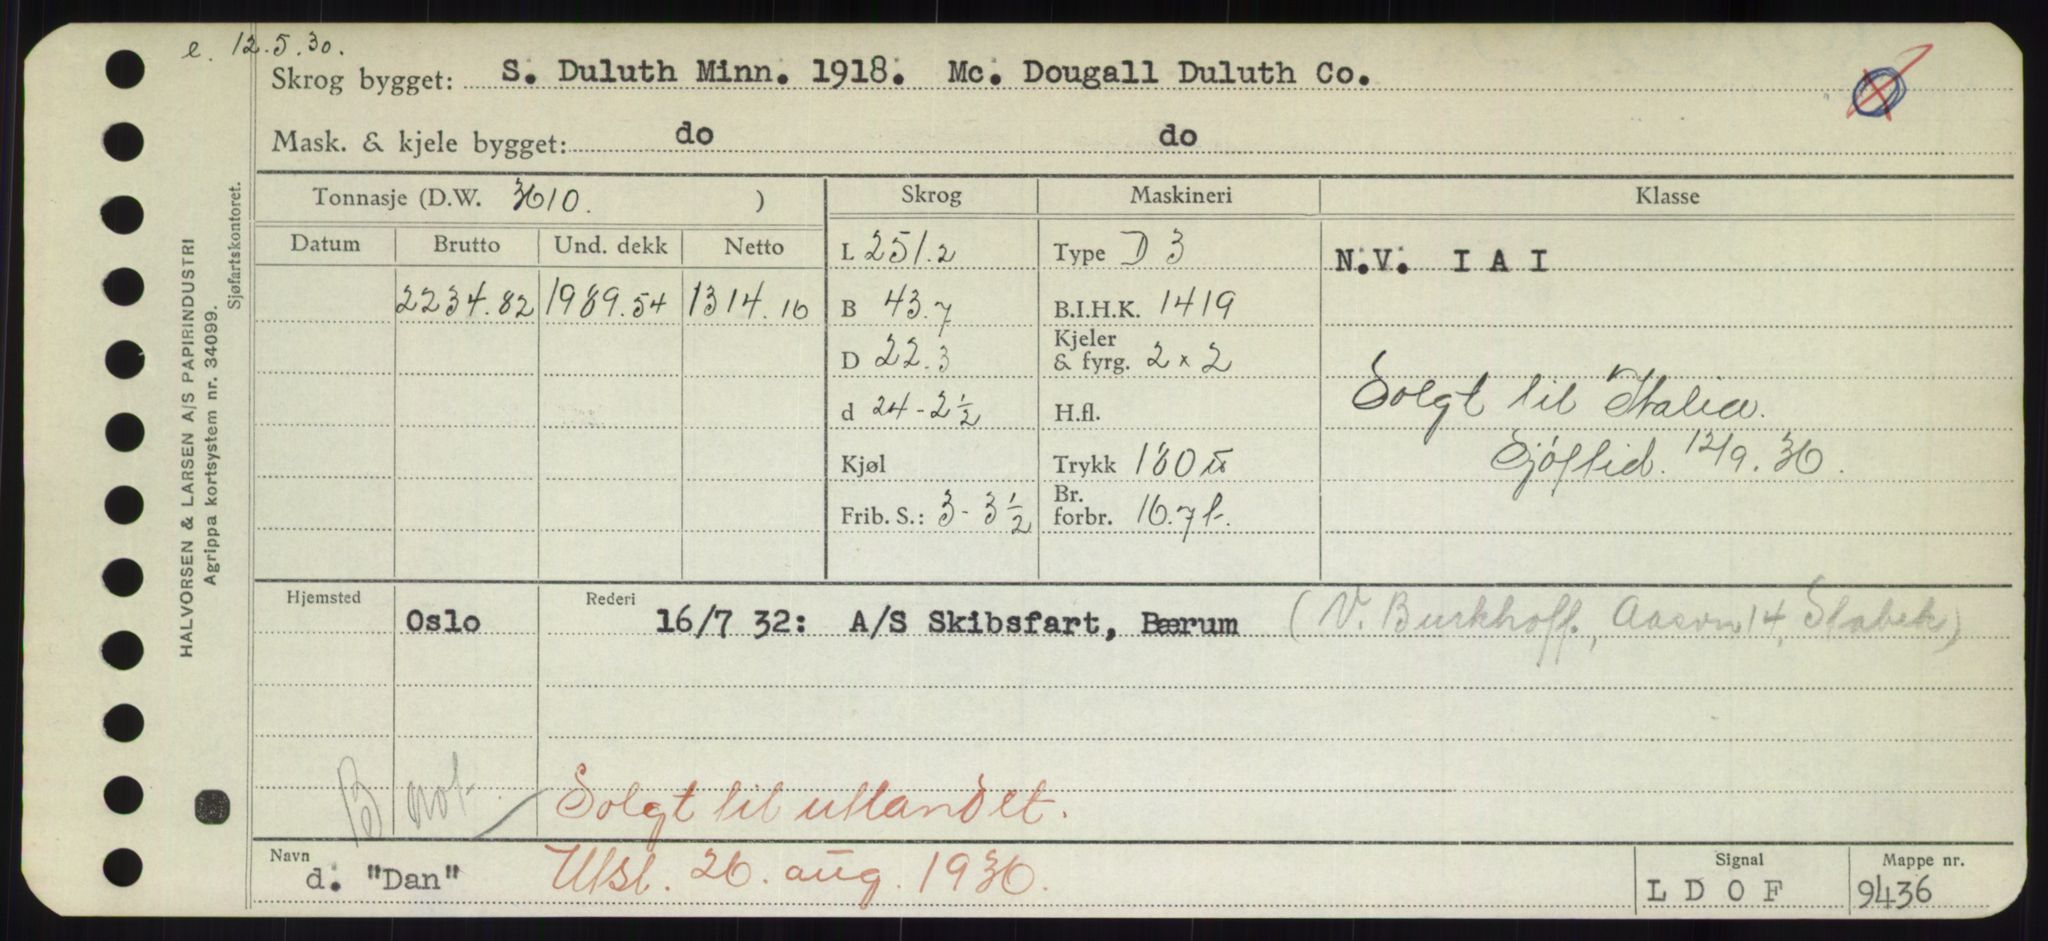 e. 12.5.30.
Skrog bygget: S. Duluth Minn. 1918. Mc. Dougall Duluth Co.
Mask. & kjele bygget: do do
HALVORSEN & LARSEN A/S PAPIRINDUSTRI
Agrippa kortsystem nr. 34099.
Sjøfartskontoret.
Tonnasje (D.W. 3610. ) Skrog Maskineri Klasse
Datum Brutto Und. dekk Netto
2234.82 1989.54 1314.16
L 251.2 Type D 3 N.V. I A I
B 43.7 B.I.H.K. 1419
D 22.3 Kjeler & fyrg. 2 x 2
d 24-2½ H.fl. Solgt til Italia.
Kjøl Trykk 180 Sjöftid. 12/9.36.
Frib. S.: 3-3½ Br. forbr. 16.7 t.
Hjemsted Rederi
Oslo 16/7 32: A/S Skibsfart, Bærum (V. Burkhoff., Aasvn 14, Stabek)
B not. Solgt til utlandet.
Navn Signal Mappe nr.
d. "Dan" Utsl. 26. aug. 1936. L D O F 9436